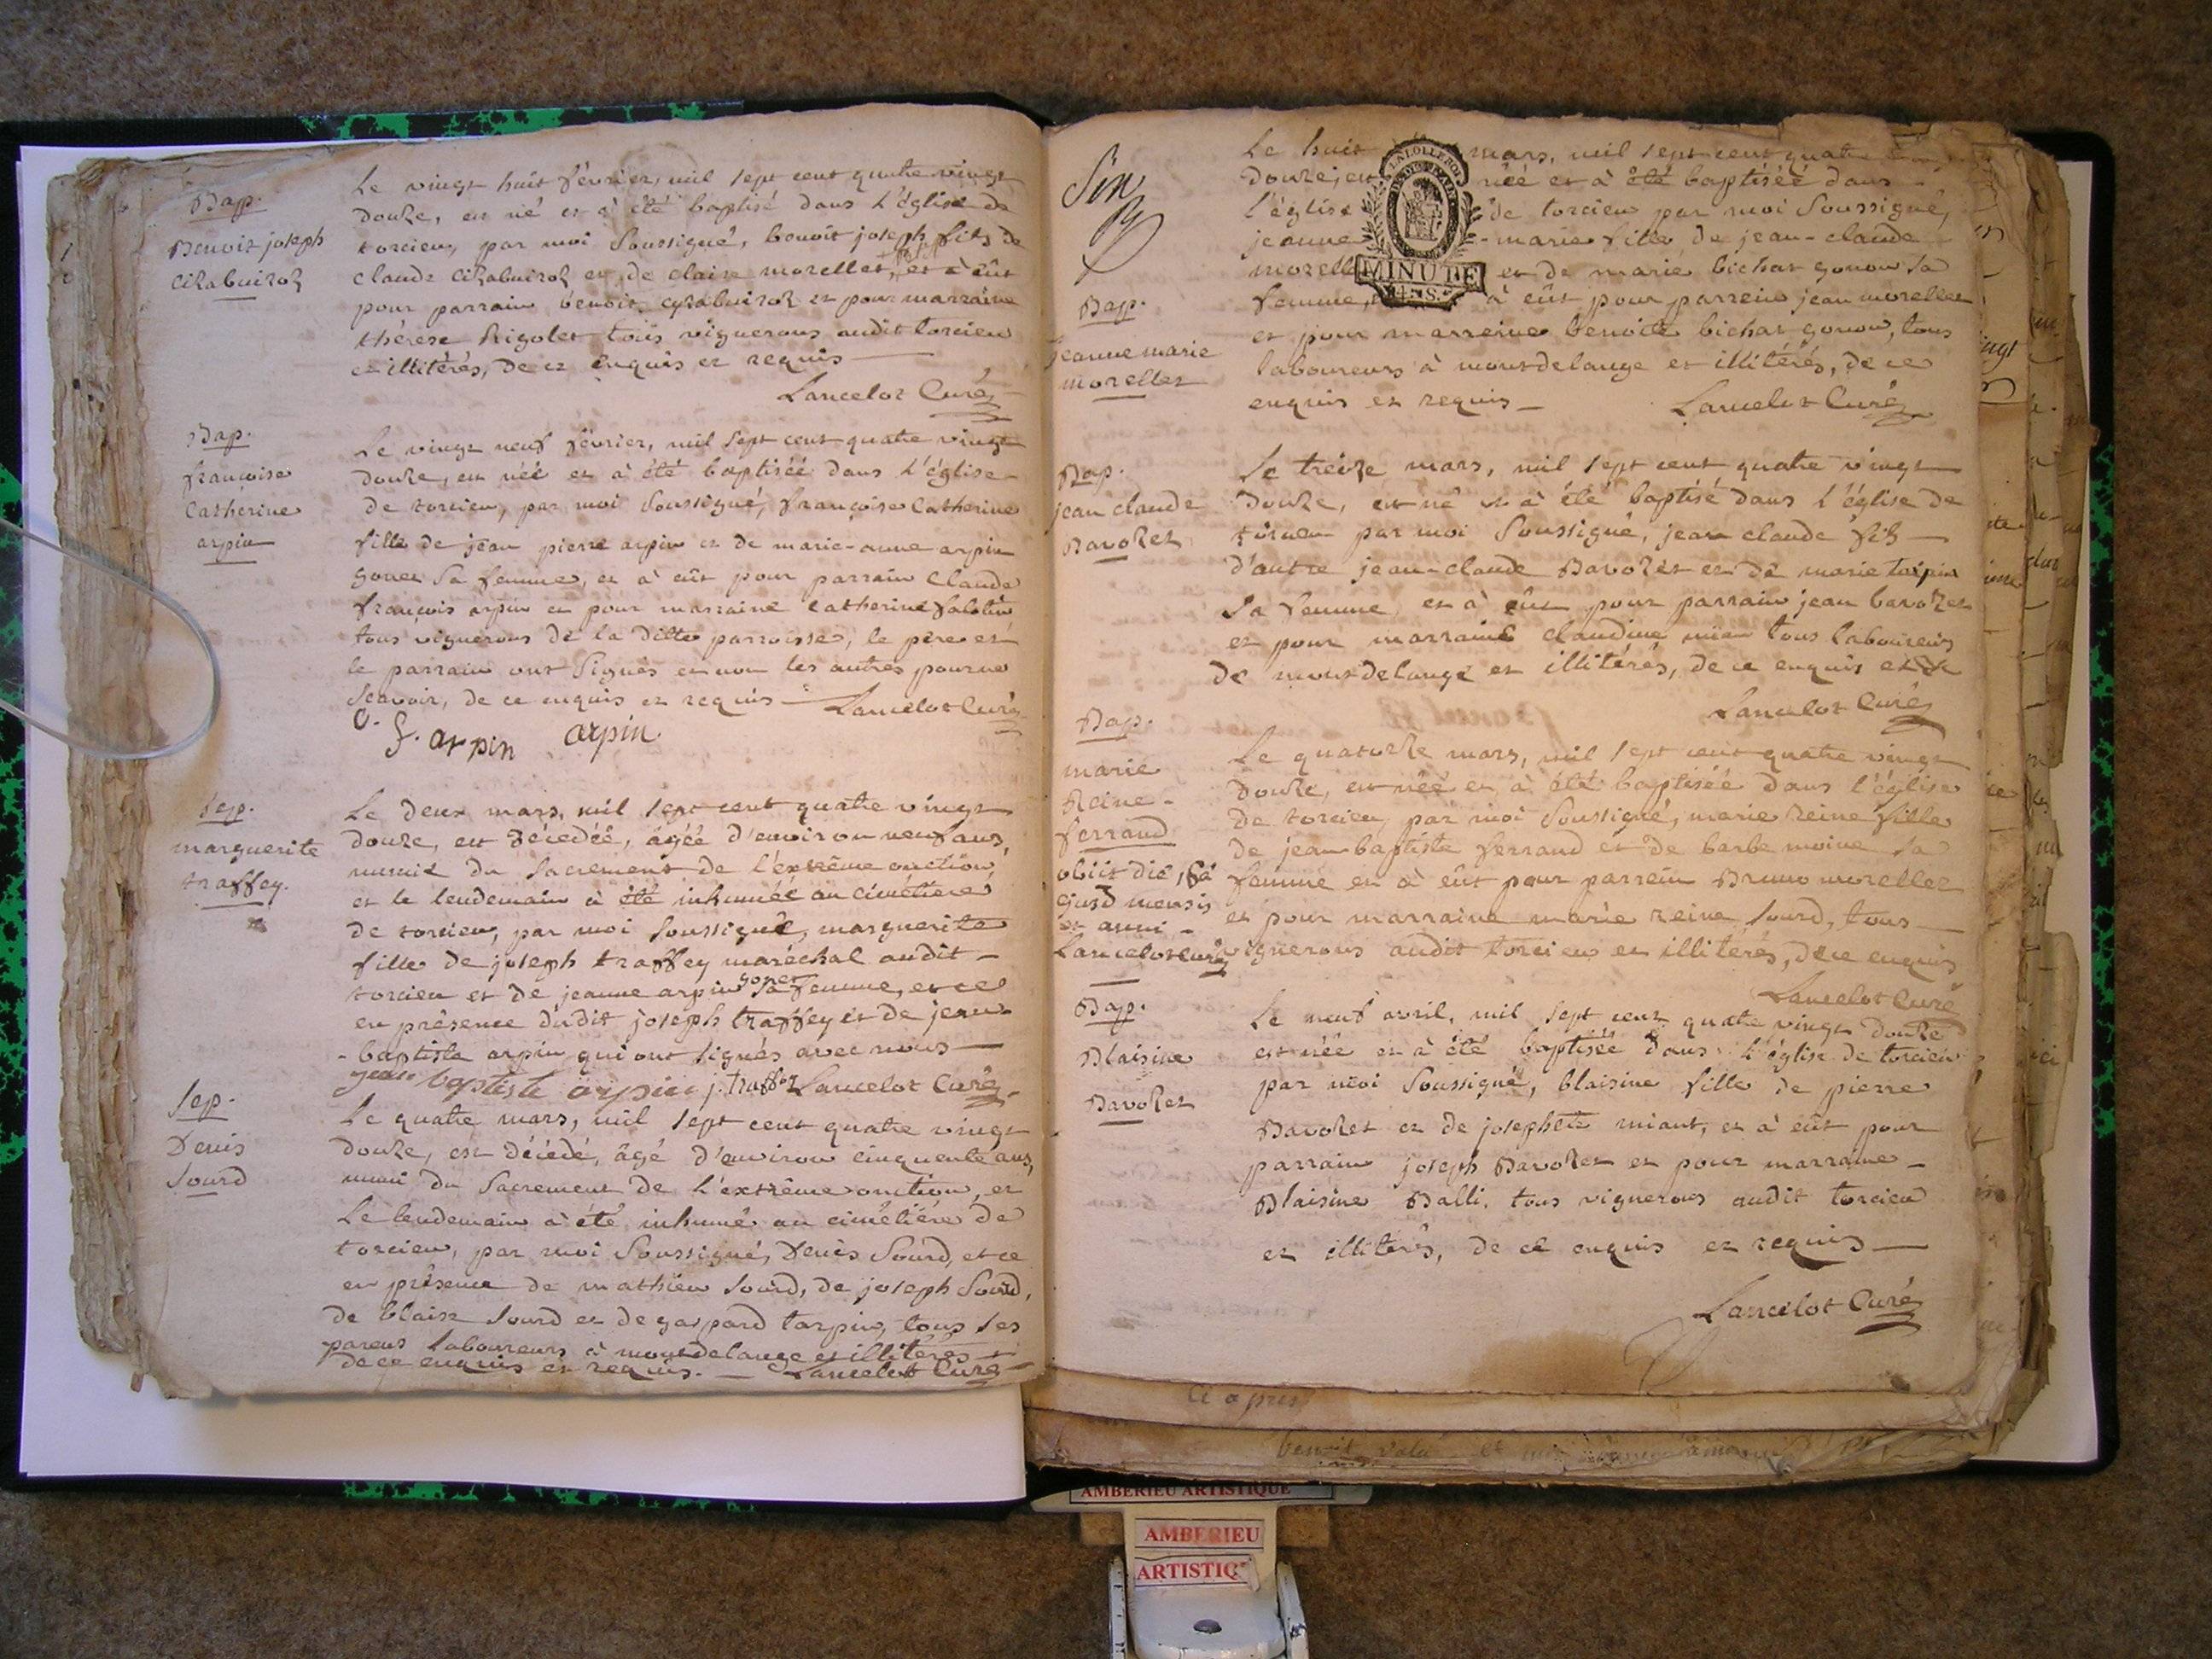 Bap.
Benoit joseph
Cizabuiroz
Le vingt huit février, mil sept cent quatre vingt
douze, est né et à été baptisé dans l'église de
torcieu, par moi soussigné, benoit joseph fils de
claude Cizabuiroz et de claire morellet, et à eût
pour parrain benoit cyzabuiroz et pour marraine
thérese Rigolet tous vignerons audit torcieu
et illitérés, de ce enquis et requis
Lancelot Curé
Bap.
françoise
Catherine
arpin
Le vingt neuf février, mil sept cent quatre vingt
douze, est néé et à été baptiséé dans l'église
de torcieu, par moi soussigné, françoise Catherine
fille de jean pierre arpin et de marie-anne arpin
gonet sa femme, et à eût pour parrain Claude
françois arpin et pour marraine catherine
tous vignerons de la ditte parroisse, le pere et
le parrain ont signés et non les autres pour ne
scavoir, de ce enquis et requis - Lancelot Curé
C. f. arpin arpin
Sep.
marguerite
traffey.
Le deux mars, mil sept cent quatre vingt
douze, est décedéé, âgéé d'environ neuf ans,
munie du sacrement de l'extrême onction,
et le lendemain à été inhuméé au cimetiere
de torcieu, par moi soussigné, marguerite
fille de joseph traffey maréchal audit -
torcieu et de jeanne arpin gonet sa femme, et ce
en présence dudit joseph traffey et de jean
- baptiste arpin qui ont signés avec nous
jean baptiste arpin j. traffey Lancelot Curé
Sep.
Denis
Sourd
Le quatre mars, mil sept cent quatre vingt
douze, est décédé, âgé d'environ cinquente ans,
muni du sacrement de l'extrême onction, et
le lendemain à été inhumé au cimétiére de
torcieu, par moi soussigné, Denis Sourd, et ce
en présence de mathieu sourd, de joseph Sourd,
de blaise sourd et de gaspard tarpin, tous ses
parens laboureurs à montdelange et illitérés
de ce enquis et requis. - Lancelot Curé
Bap.
jeanne marie
morellet
Le huit mars, mil sept cent quatre
douze, est néé et à été baptiséé dans
l'église de torcieu par moi soussigné,
jeanne - marie fille de jean-claude
morell et de marie bichat gonou sa
femme, à eût pour parrein jean morellet
et pour marreine benoite bichat gonou, tous
laboureurs à montdelange et illitérés, de ce
enquis et requis - Lancelot Curé
MINUTE
4. S.
Bap.
jean claude
Bavozet
Le treize mars, mil sept cent quatre vingt
douze, est né et à été baptisé dans l'église de
torcieu par moi soussigné, jean claude fils
d'autre jean-claude Bavozet et de marie tarpin
sa femme et à eût pour parrain jean bavozet
et pour marraine claudine tous laboureurs
de montdelange et illitérés, de ce enquis et
Lancelot Curé
Bap.
marie
Reine -
ferrand
obiit die
ejusd mensis
et anni -
Lancelot curé
Le quatorze mars, mil sept cent quatre vingt
douze, est néé et à été baptiséé dans l'église
de torcieu, par moi soussigné, marie reine fille
de jean-baptiste ferrand et de barbe moine sa
femme et à eût pour parrein Bruno morellet
et pour marraine marie reine sourd, tous
vignerons audit torcieu et illitérés, de ce enquis
Lancelot Curé
Bap.
Blaisine
Bavozet
Le neuf avril, mil sept cent quatre vingt douze
est néé et à été baptiséé dans l'église de torcieu
par moi soussigné, blaisine fille de pierre
Bavozet et de josephte miant, et à eût pour
parrain joseph Bavozet et pour marraine -
Blaisine Balli, tous vignerons audit torcieu
et illitérés, de ce enquis et requis
Lancelot Curé
AMBERIEU ARTISTIQUE
AMBERIEU
ARTISTIQ